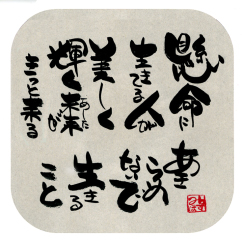 懸命に
生きてる人が
美しく
輝く未来が
あした
きっと来る
あきらめ
ないで
生きる
こと